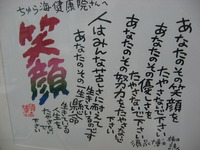 ちゅら海健康院さんへ
笑顔
あなたのその笑顔を
たやさないで下さい
あなたのその優しさを
たやさないで下さい
あなたのその努力を
たやさないで下さい
人はみんな苦しさに耐えて
生きているのです
あなたのその一生懸命
生きている